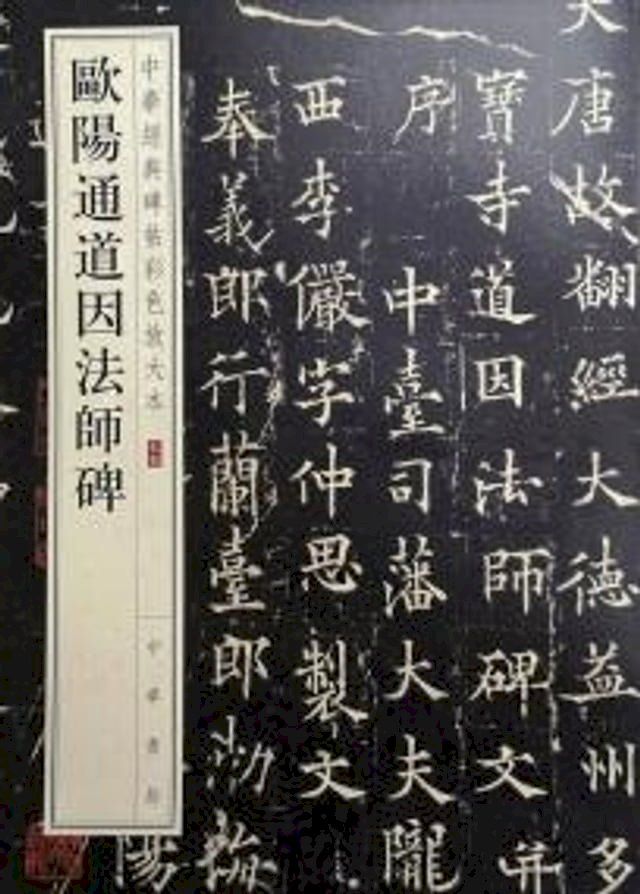 大唐故翻經大德益州多
寶寺道因法師碑文并
序 中臺司藩大夫隴
西李儼字仲思製文
奉義郎行蘭臺郎渤
陽
中華經典碑帖彩色放大本
中華書局
歐陽通道因法師碑